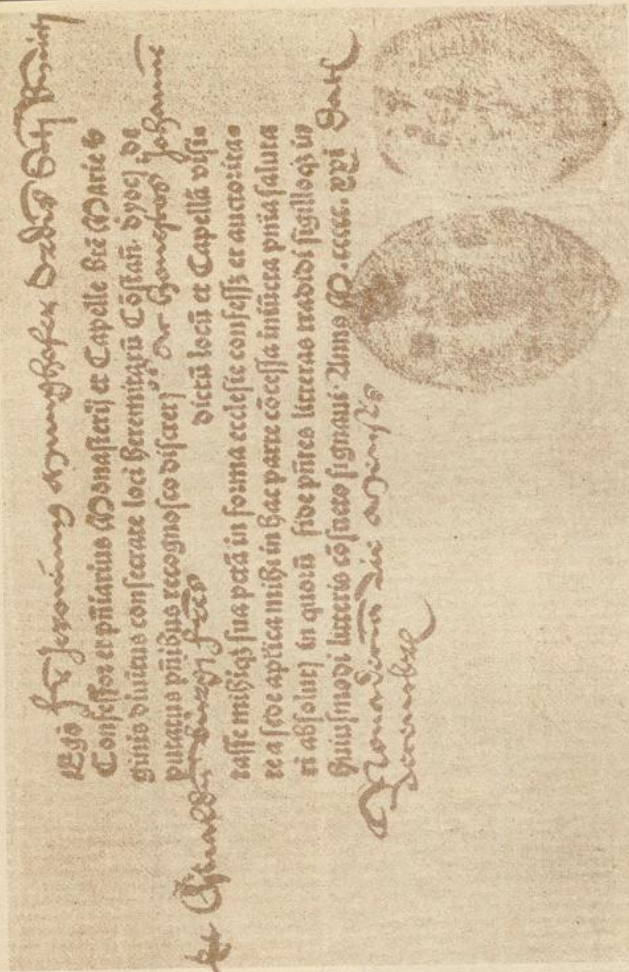 Ego fr̃ Jeronim⁹
Confessor et pñiarius Monasterij et Capelle btẽ Marie v
ginis diuinitus consecrate loci heremitarũ Cõstañ. dyocẽ de
putatus pñibus recognosco discret Johannẽ
et fr̃es dictũ locũ et Capellã visi
tasse mihiqz sua pctã in forma ecclesie confess et auctorita
te a sede aplica mihi in hac parte cõcessa iniũcta pnia saluta
ri absolut in quorũ fidẽ pñtes litteras tradidi sigilloqz in
huiusmodi litteris cõsueto signaui Anno M.cccc. Dat
die Mensis
Decembris